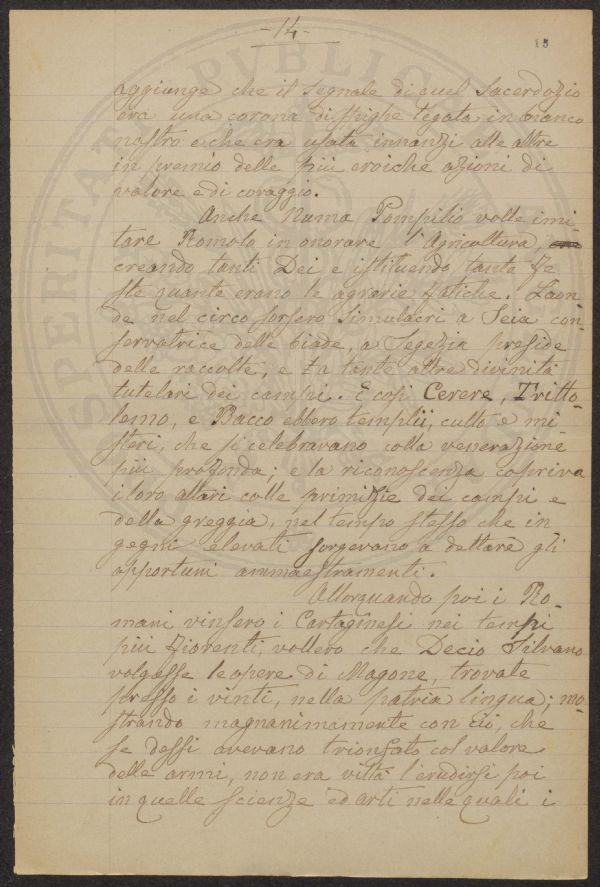 -14-
15
aggiunge che il segnale di quel Sacerdozio
era una corona di spighe legata in bianco
nastro e che era usata innanzi alle altre
in premio delle più eroiche azioni di
valore e di coraggio.
Anche Numa Pompilio volle imi-
tare Romolo in onorare l'Agricoltura,
creando tanti Dei e istituendo tante Fe
ste quante erano le agrarie fatiche. Laon
de nel circo sorsero simulacri a Seia con
servatrice delle biade, a Segezia preside
delle raccolte, e a tante altre divinità
tutelari dei campi. E così Cerere, Tritto-
lemo, e Bacco ebbero templii, culto e mi
steri, che si celebravano colla venerazione
più profonda; e la riconoscenza copriva
i loro altari colle primizie dei campi e
della greggia, nel tempo stesso che in
gegni elevati sorgevano a dettare gli
opportuni ammaestramenti.
Allorquando poi i Ro-
mani vinsero i Cartaginesi nei tempi
più fiorenti, vollero che Decio Silvano
volgesse le opere di Magone, trovate
presso i vinti, nella patria lingua; mo
strando magnanimamente con ciò, che
se dessi avevano trionfato col valore
delle armi, non era viltà l'erudirsi poi
in quelle scienze ed arti nelle quali i
SPERITAT PUBLICAE